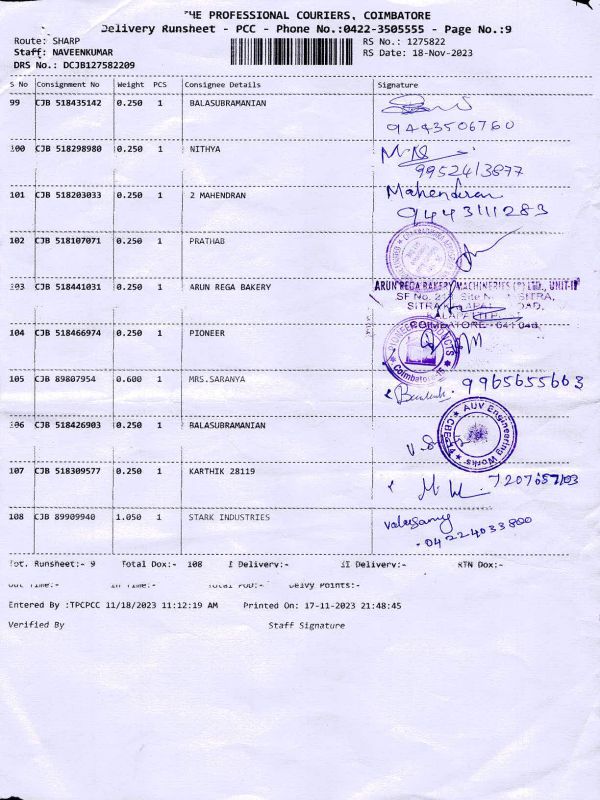 THE PROFESSIONAL COURIERS, COIMBATORE
Delivery Runsheet - PCC - Phone No.:0422-3505555 - Page No.:9
Route: SHARP
RS No.: 1275822
Staff: NAVEENKUMAR
RS Date: 18-Nov-2023
DRS No.: DCJB127582209
S No Consignment No Weight PCS Consignee Details Signature
99 CJB 518435142 0.250 1 BALASUBRAMANIAN
9443506760
100 CJB 518298980 0.250 1 NITHYA
9952413877
101 CJB 518203033 0.250 1 2 MAHENDRAN Mahendran
9443111283
102 CJB 518107071 0.250 1 PRATHAB
103 CJB 518441031 0.250 1 ARUN REGA BAKERY ARUN REGA BAKERY MACHINERIES (P) LTD., UNIT-II
SF No. Site SITRA,
COIMBATORE - 641 048.
104 CJB 518466974 0.250 1 PIONEER
PIONEER PRODUCTS
Coimbatore
105 CJB 89807954 0.600 1 MRS.SARANYA 9965655663
106 CJB 518426903 0.250 1 BALASUBRAMANIAN
AUV Engineering Works
107 CJB 518309577 0.250 1 KARTHIK 28119
108 CJB 89909940 1.050 1 STARK INDUSTRIES
04224033800
Tot. Runsheet:- 9 Total Dox:- 108 I Delivery:- II Delivery:- RTN Dox:-
Out Time:- In Time:- Total POD:- Delvy Points:-
Entered By :TPCPCC 11/18/2023 11:12:19 AM Printed On: 17-11-2023 21:48:45
Verified By Staff Signature